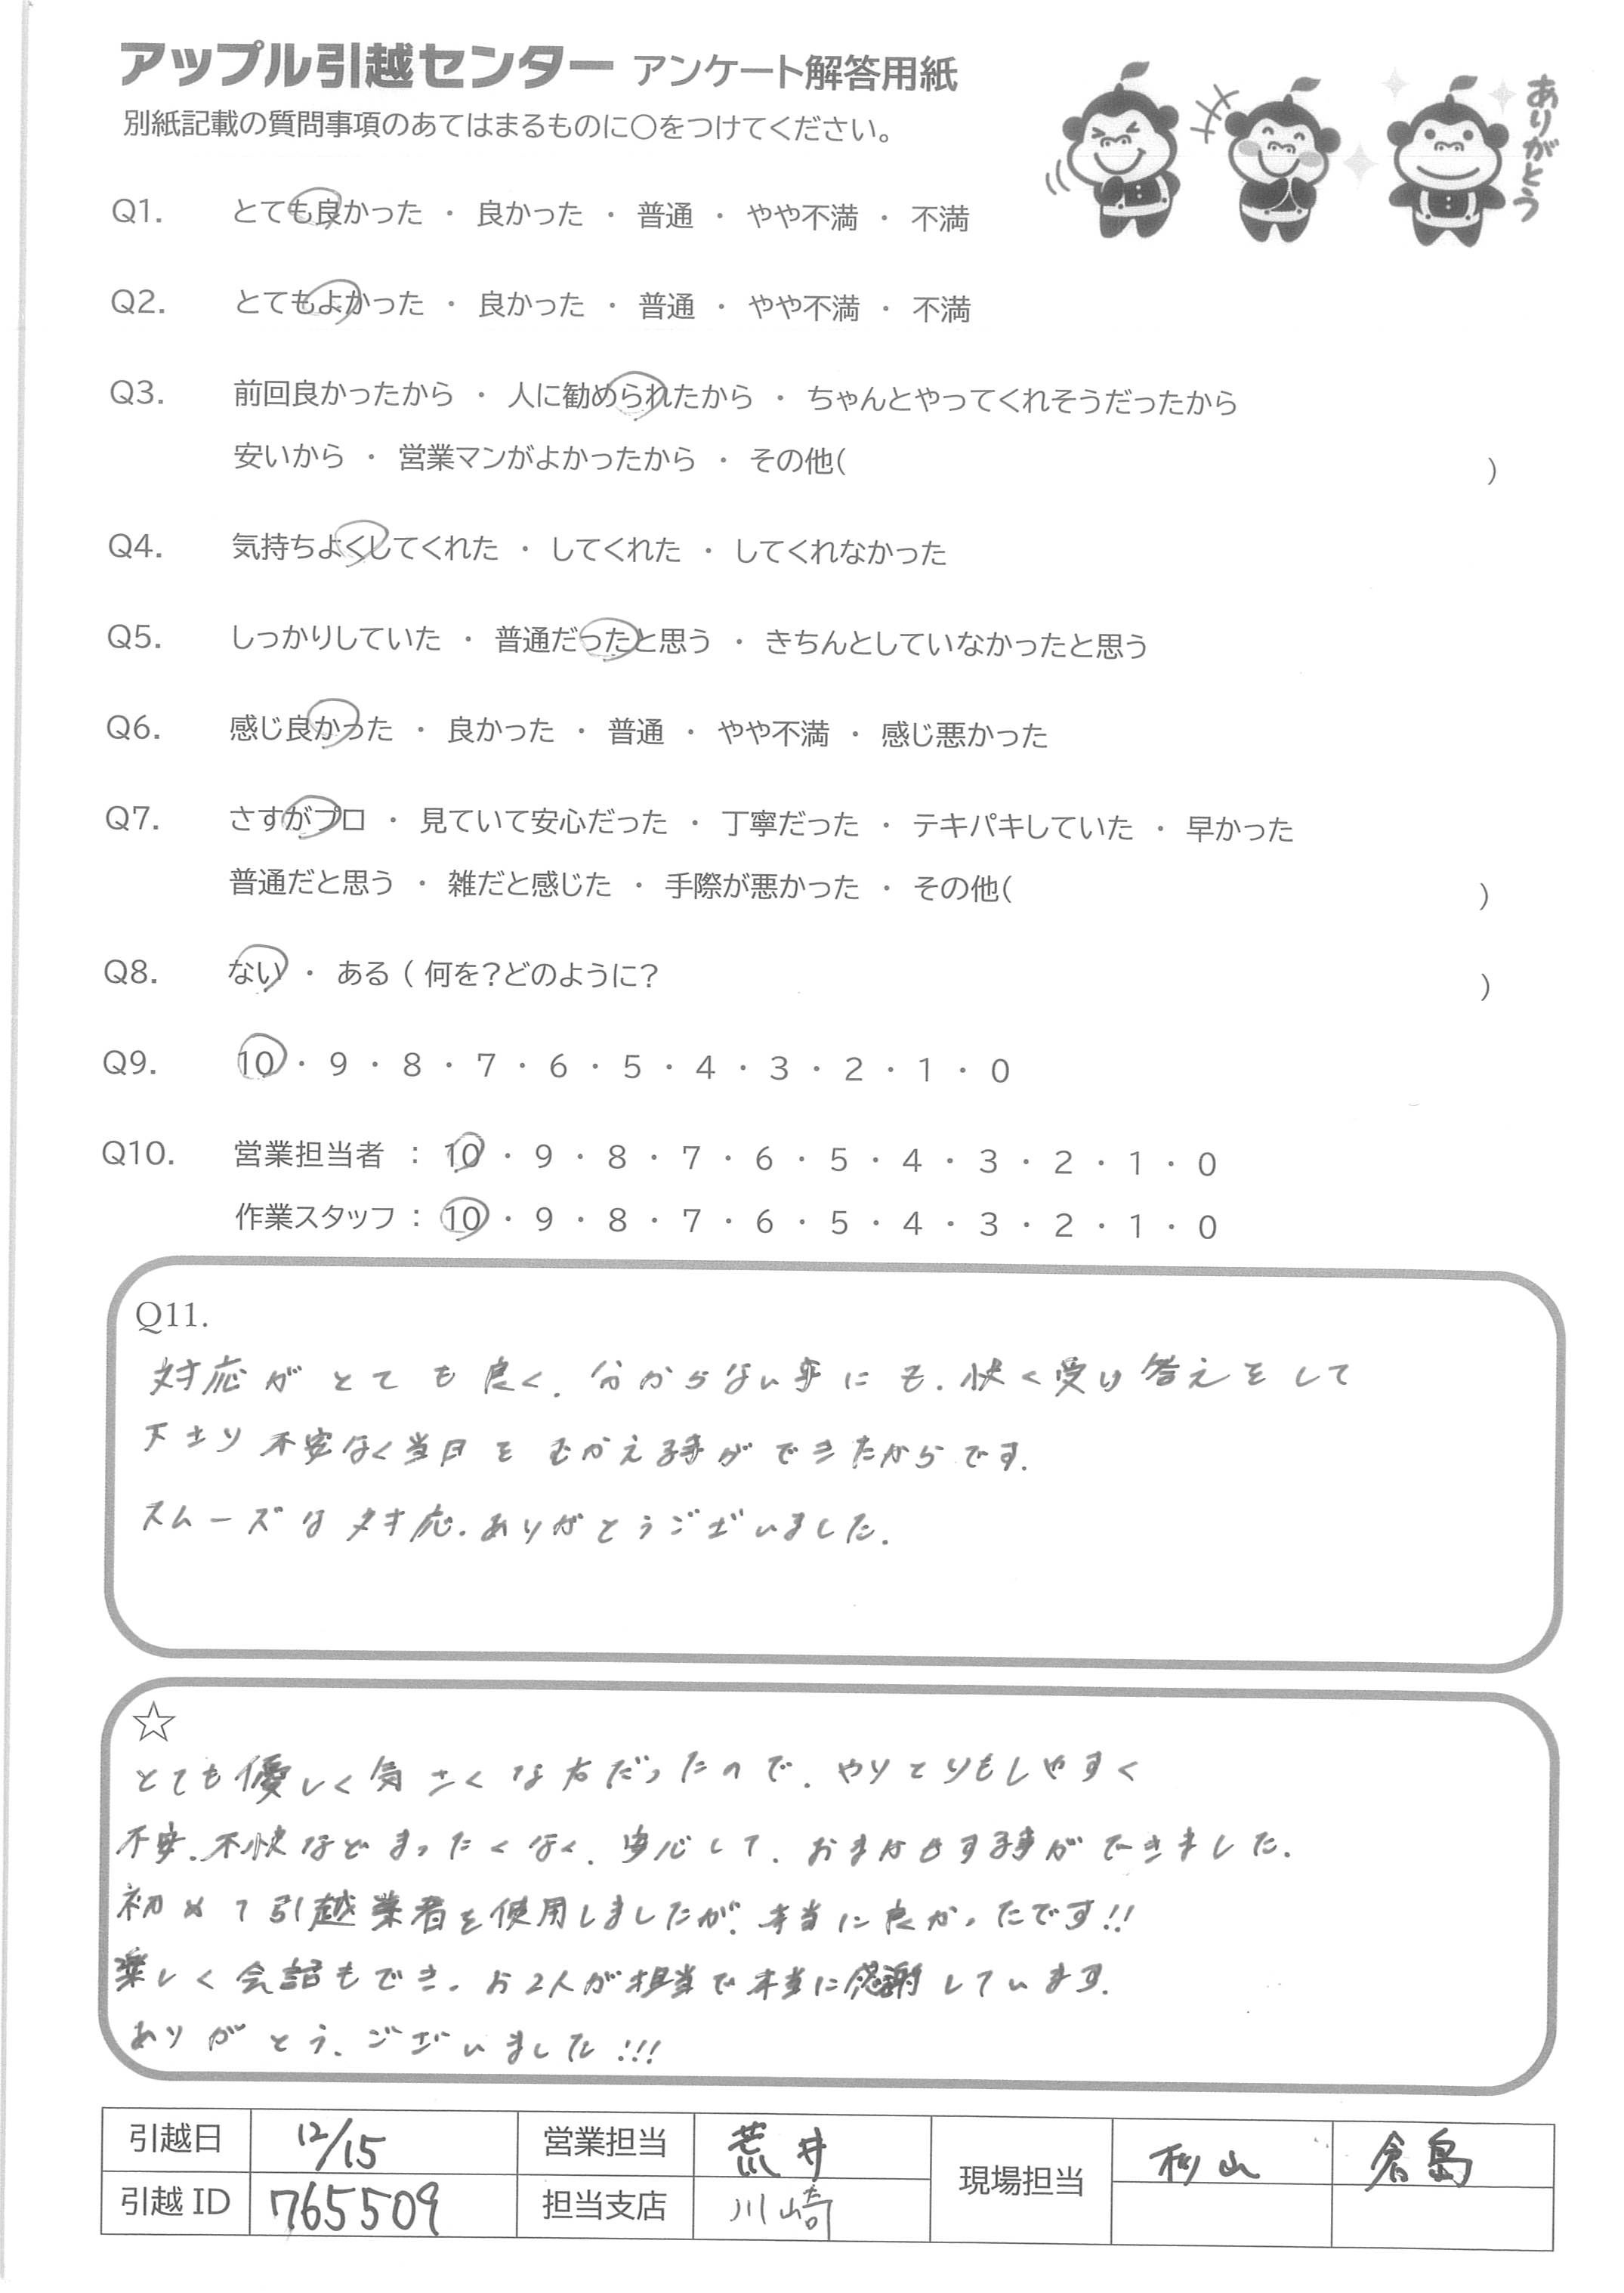 アップル引越センター アンケート解答用紙
別紙記載の質問事項のあてはまるものに○をつけてください。
ありがとう
Q1. とても良かった ・ 良かった ・ 普通 ・ やや不満 ・ 不満
Q2. とてもよかった ・ 良かった ・ 普通 ・ やや不満 ・ 不満
Q3. 前回良かったから ・ 人に勧められたから ・ ちゃんとやってくれそうだったから
安いから ・ 営業マンがよかったから ・ その他( )
Q4. 気持ちよくしてくれた ・ してくれた ・ してくれなかった
Q5. しっかりしていた ・ 普通だったと思う ・ きちんとしていなかったと思う
Q6. 感じ良かった ・ 良かった ・ 普通 ・ やや不満 ・ 感じ悪かった
Q7. さすがプロ ・ 見ていて安心だった ・ 丁寧だった ・ テキパキしていた ・ 早かった
普通だと思う ・ 雑だと感じた ・ 手際が悪かった ・ その他( )
Q8. ない ・ ある ( 何を?どのように? )
Q9. 10 ・ 9 ・ 8 ・ 7 ・ 6 ・ 5 ・ 4 ・ 3 ・ 2 ・ 1 ・ 0
Q10. 営業担当者 : 10 ・ 9 ・ 8 ・ 7 ・ 6 ・ 5 ・ 4 ・ 3 ・ 2 ・ 1 ・ 0
作業スタッフ : 10 ・ 9 ・ 8 ・ 7 ・ 6 ・ 5 ・ 4 ・ 3 ・ 2 ・ 1 ・ 0
Q11.
対応がとても良く、分からない事にも、快く受け答えをして
下さり不安なく当日をむかえる事ができたからです。
スムーズな対応、ありがとうございました。
☆
とても優しく気さくな方だったので、やりとりもしやすく
不安、不快などまったくなく、安心して、おまかせする事ができました。
初めて引越業者を使用しましたが、本当に良かったです!!
楽しく会話もでき、お2人が担当で本当に感謝しています。
ありがとう、ございました!!!
引越日 12/15 営業担当 荒井 現場担当 杉山 倉島
引越ID 765509 担当支店 川崎